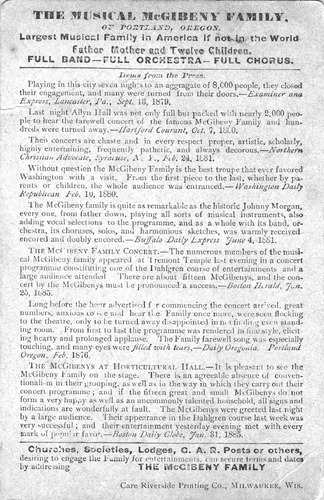 THE MUSICAL McGIBENY FAMILY,
OF PORTLAND, OREGON.
Largest Musical Family in America if not in the World
Father Mother and Twelve Children.
FULL BAND—FULL ORCHESTRA—FULL CHORUS.
Items from the Press.
Playing in this city seven nights to an aggregate of 8,000 people, they closed
their engagement, and many were turned from their doors.—Examiner and
Express, Lancaster, Pa., Sept. 18, 1879.
Last night Allyn Hall was not only full but packed with nearly 2,000 peo-
ple to hear the farewell concert of the famous McGibeny Family and hun-
dreds were turned away.—Hartford Courant, Oct. 7,
Their concerts are chaste and in every respect proper, artistic, scholarly,
highly entertaining, frequently pathetic, and always decorous.—Northern
Christian Advocate, Syracuse, N. Y., Feb. 24, 1881.
Without question the McGibeny Family is the best troupe that ever favored
Washington with a visit. From the first piece to the last, whether by pa-
rents or children, the whole audience was entranced.—Washington Daily
Republican Feb. 19, 1880.
The McGibeny family is quite as remarkable as the historic Johnny Morgan,
every one, from father down, playing all sorts of musical instruments, also
adding vocal selections to the programme, and as a whole with its band, or-
chestra, its choruses, solos, and harmonious sketches, was warmly received
encored and doubly encored.—Buffalo Daily Express June 4, 1881.
THE McGIBENY FAMILY CONCERT.—The numerous members of the musi-
cal McGibeny family appeared at Tremont Temple last evening in a concert
programme constituting one of the Dahlgren course of entertainments and a
large audience attended There are about fifteen McGibenys, and the con-
cert by the McGibenys must be pronounced a success.—Boston Herald, Jan.
25, 1885.
Long before the hour advertised for commencing the concert arrived, great
numbers, anxious to see and hear the Family once more, were seen flocking
to the theatre, only to be turned away disappointed in not finding even stand-
ing room. From first to last the programme was rendered in fine style, elicit-
ing hearty and prolonged applause. The Family farewell song was especially
touching, and many eyes were filled with tears,—Daily Oregonia Portland
Oregon, Feb. 1876.
THE McGIBENYS AT HORTICULTURAL HALL.—It is pleasant to see the
McGibeny Family on the stage. There is an agreeable absence of conven-
tionalism in their grouping, as well as in the way in which they carry out their
concert programme; and if the fifteen great and small McGibenys do not
form a very happy as well as an uncommonly talented household, all signs and
indications are wonderfully at fault. The McGibenys were greeted last night
by a large audience. Their appearance in the Dahlgren course last week was
very successful; and their entertainment yesterday evening met with every
mark of popular favor.—Boston Daily Globe, Jan. 31, 1885.
Churches, Societies, Lodges, G. A. R. Posts or others,
desiring to engage the Family for entertainments, can secure terms and dates
by addressing THE McGIBENY FAMILY
Care Riverside Printing Co., MILWAUKEE, WIS.